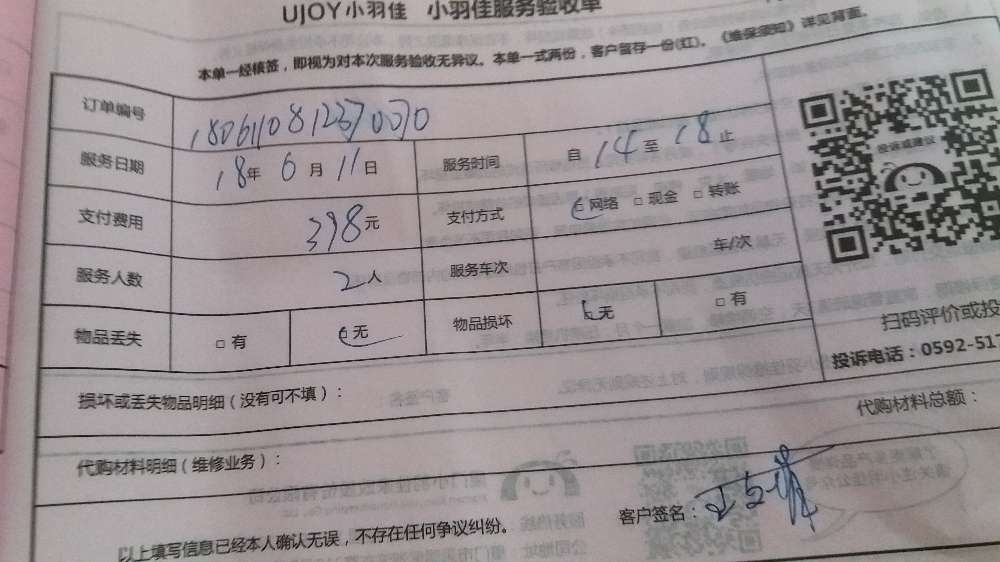 UJOY小羽佳 小羽佳服务验收单
本单一经核签，即视为对本次服务验收无异议。本单一式两份，客户留存一份(红)。《维保须知》详见背面。
订单编号 1806110812370070
服务日期 18年 6月 11日 服务时间 自 14 至 18 止
投诉或建议
支付费用 398元 支付方式 网络 □ 现金 □ 转账
服务人数 2人 服务车次 车/次
物品丢失 □ 有 无 物品损坏 无 □ 有
扫码评价或投
投诉电话：0592-517
损坏或丢失物品明细（没有可不填）：
代购材料明细（维修业务）： 代购材料总额：
以上填写信息已经本人确认无误，不存在任何争议纠纷。 客户签名：